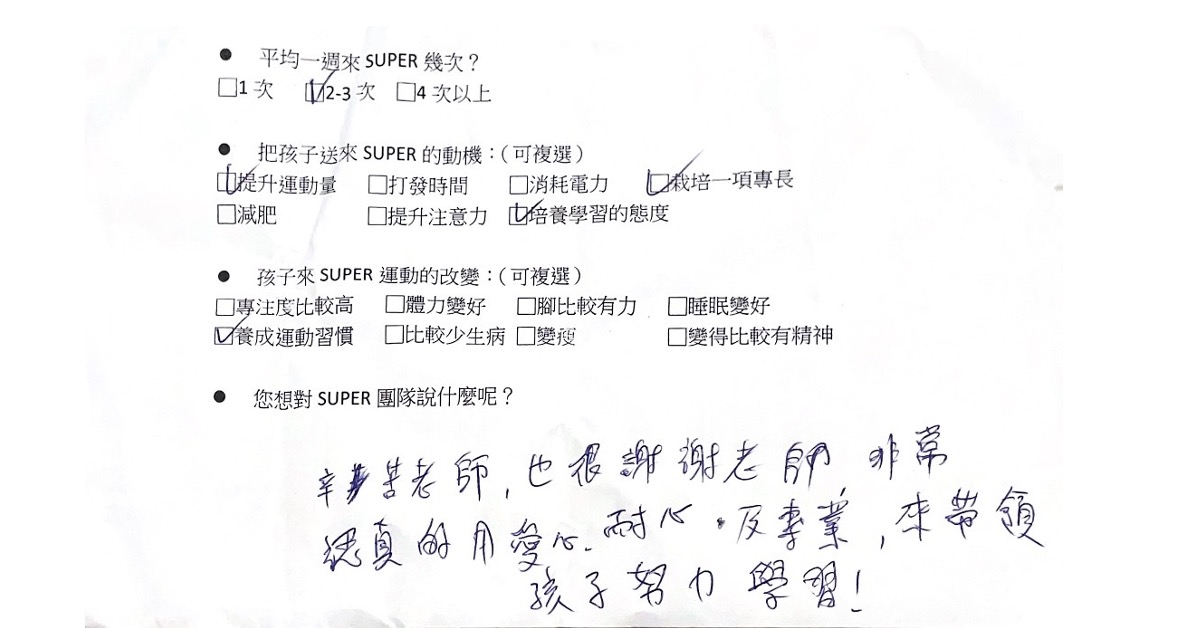 ● 平均一週來 SUPER 幾次？
□1 次 ☑2-3 次 □4 次以上
● 把孩子送來 SUPER 的動機：（可複選）
☑提升運動量 □打發時間 □消耗電力 ☑栽培一項專長
□減肥 □提升注意力 ☑培養學習的態度
● 孩子來 SUPER 運動的改變：（可複選）
□專注度比較高 □體力變好 □腳比較有力 □睡眠變好
☑養成運動習慣 □比較少生病 □變瘦 □變得比較有精神
● 您想對 SUPER 團隊說什麼呢？
辛苦老師，也很謝謝老師，非常
認真的用愛心、耐心、及專業，來帶領
孩子努力學習！